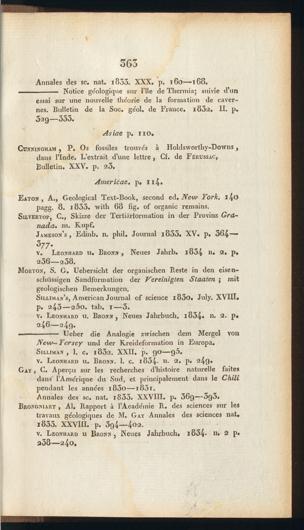 363
Annales des sc. nat. 1833. XXX. p. 160—168.
——— Notice géologique sur l'île de Thermia; suivie d'un
essai sur une nouvelle théorie de la formation de caver-
nes. Bulletin de la Soc. géol. de France. 1832. II. p.
329—333.
Asiae p. 110.
CUNNINGHAM, P. Os fossiles trouvés à Holdsworthy-Downs,
dans l'Inde. L'extrait d'une lettre, Cl. de FÉRUSSAC,
Bulletin. XXV. p. 23.
Americae. p. 114.
EATON, A., Geological Text-Book, second ed. New York. 140
pagg. 8. 1833. with 68 fig. of organic remains.
SILVERTOP, C., Skizze der Tertiärformation in der Provinz Gra-
nada. m. Kupf.
JAMESON'S, Edinb. n. phil. Journal 1833. XV. p. 364—
377.
v. LEONHARD u BRONN, Neues Jahrb. 1834 n. 2. p.
236—238.
MORTON, S. G. Uebersicht der organischen Reste in den eisen-
schüssigen Sandformation der Vereinigten Staaten; mit
geologischen Bemerkungen.
SILLIMAN'S, American Journal of science 1830. July. XVIII.
p. 243—250. tab. 1—3.
v. LEONHARD u BRONN, Neues Jahrbuch, 1834. n. 2. p.
246—249.
——— Ueber die Analogie zwischen dem Mergel von
New-Yersey und der Kreideformation in Europa.
SILLIMAN, l. c. 1832. XXII. p. 90—95.
v. LEONHARD u BRONN. l. c. 1834. n. 2. p. 249.
GAY, C. Aperçu sur les recherches d'histoire naturelle faites
dans l'Amérique du Sud, et principalement dans le Chili
pendant les années 1830—1831.
Annales des sc. nat. 1833. XXVIII. p. 369—393.
BRONGNIART, Al. Rapport à l'Académie R. des sciences sur les
travaux géologiques de M. GAY Annales des sciences nat.
1833. XXVIII. p. 394—402.
v. LEONHARD u BRONN, Neues Jahrbuch. 1834. n. 2 p.
238—240.